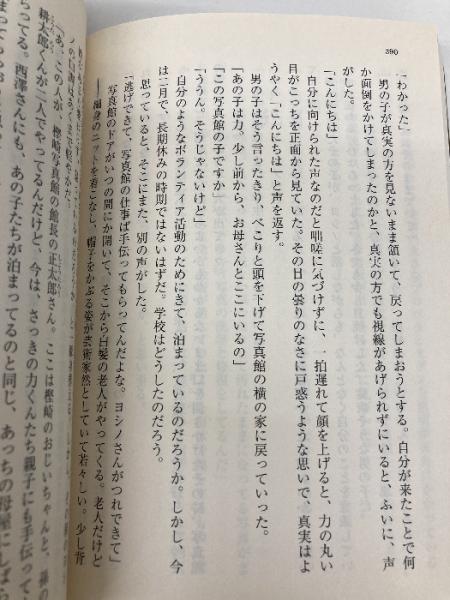 390
「わかった」
男の子が真実の方を見ないまま頷いて、戻ってしまおうとする。自分が来たことで何
か面倒をかけてしまったのかと、真実の方でも視線があげられずにいると、ふいに、声
がした。
「こんにちは」
自分に向けられた声なのだと咄嗟に気づけずに、一拍遅れて顔を上げると、力の丸い
目がこっちを正面から見ていた。その目の曇りのなさに戸惑うような思いで、真実はよ
うやく「こんにちは」と声を返す。
男の子はそう言ったきり、ぺこりと頭を下げて写真館の横の家に戻っていった。
「あの子は力。少し前から、お母さんとここにいるの」
「この写真館の子ですか」
「ううん。そうじゃないけど」
自分のようなボランティア活動のためにきて、泊まっているのだろうか。しかし、今
は二月で、長期休みの時期ではないはずだ。学校はどうしたのだろう。
思っていると、そこにまた、別の声がした。
「逃げてきて、写真館の仕事ば手伝ってもらってんだよな。ヨシノさんがつれできて」
写真館のドアがいつの間にか開いて、そこから白髪の老人だけど
のニットを着こなし、帽子をかぶる姿が芸術家然としていて若々しい。少し背
「あ、この人が、樫崎写真館の館長の正太郎さん。ここは樫崎のおじいちゃんと、孫の
耕太郎くんが二人でやってるんだけど、今は、さっきの力くんたち親子にも手伝っても
らってる。西澤さんにも、あの子たちが泊まってるのと同じ、あっちの母屋にしばら